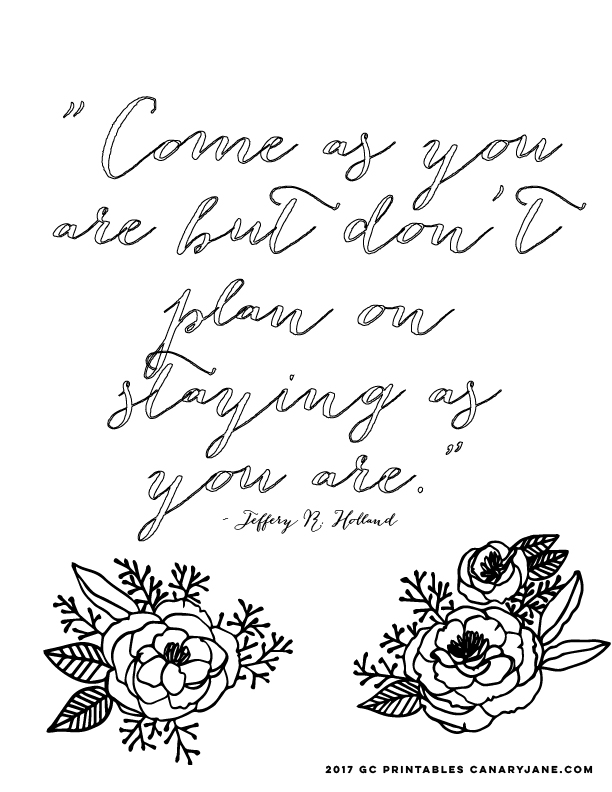 "Come as you
are but don't
plan on
staying as
you are."
- Jeffery R. Holland
2017 GC PRINTABLES CANARYJANE.COM